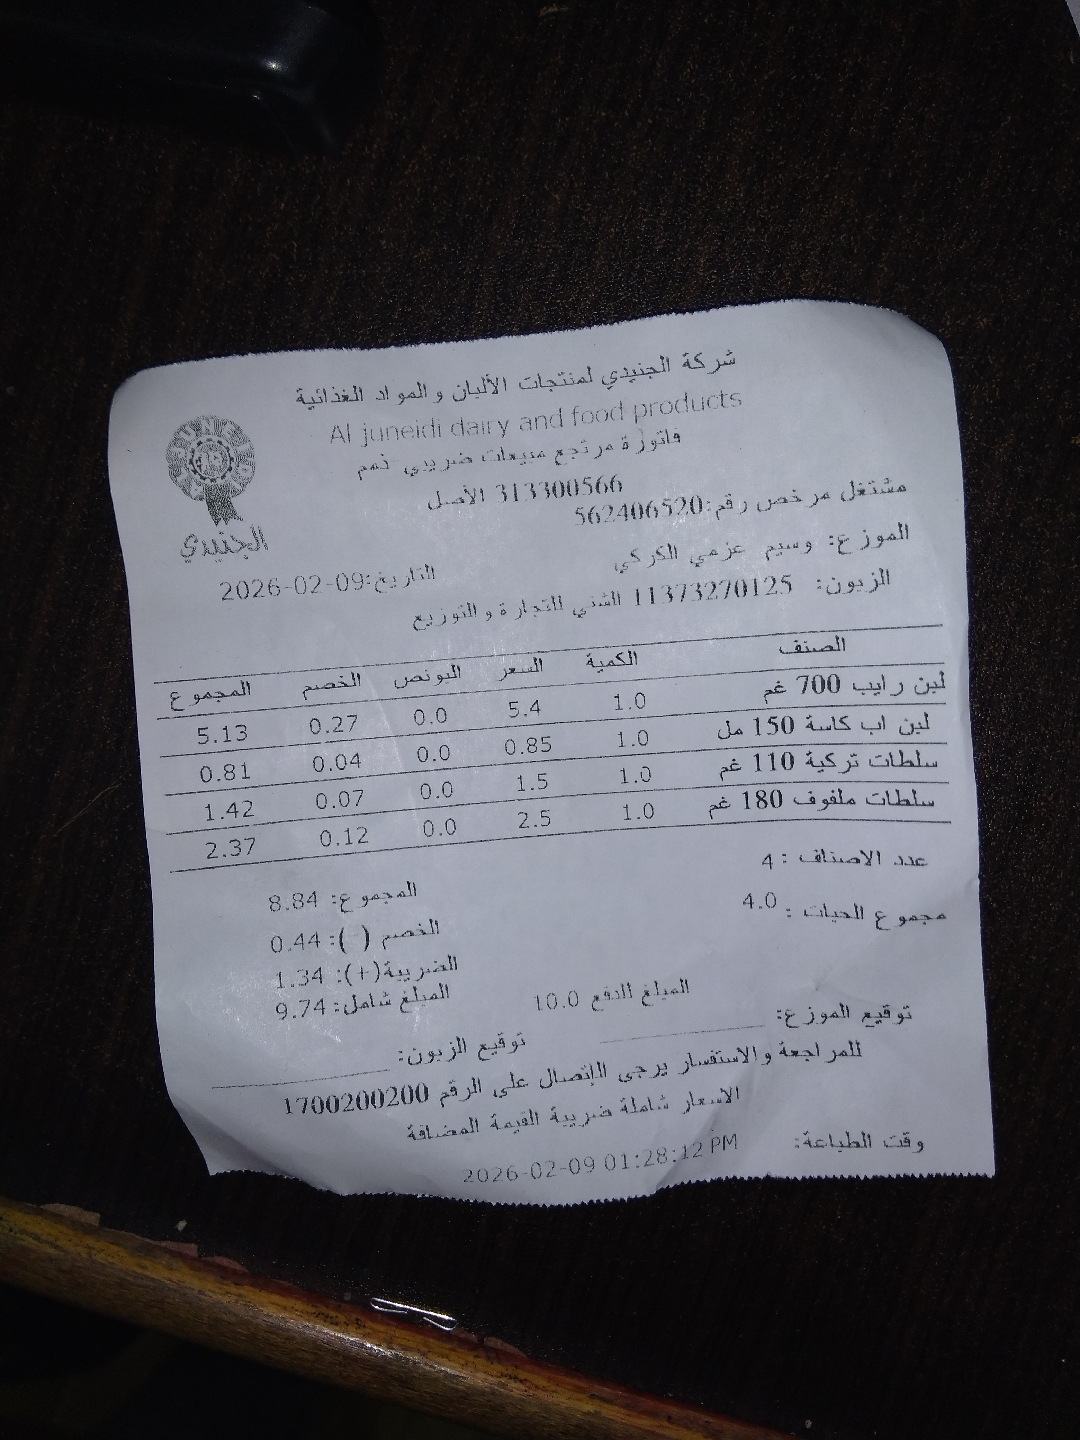 شركة الجنيدي لمنتجات الألبان والمواد الغذائية
Al juneidi dairy and food products
فاتورة مرتجع مبيعات ضريبي ذمم
313300566 الأصل
مشتغل مرخص رقم:562406520
الموزع: وسيم عزمي الكركي
التاريخ:2026-02-09
الزبون: 11373270125 الشني للتجارة والتوزيع
الجنيدي
الصنف الكمية السعر البونص الخصم المجموع
لبن رايب 700 غم 1.0 5.4 0.0 0.27 5.13
لبن اب كاسة 150 مل 1.0 0.85 0.0 0.04 0.81
سلطات تركية 110 غم 1.0 1.5 0.0 0.07 1.42
سلطات ملفوف 180 غم 1.0 2.5 0.0 0.12 2.37
عدد الاصناف : 4
المجموع: 8.84
مجموع الحبات : 4.0
الخصم (-): 0.44
الضريبة(+): 1.34
المبلغ شامل: 9.74
المبلغ للدفع 10.0
توقيع الموزع:
توقيع الزبون:
للمراجعة والاستفسار يرجى الإتصال على الرقم 1700200200
الاسعار شاملة ضريبة القيمة المضافة
وقت الطباعة: 2026-02-09 01:28:12 PM